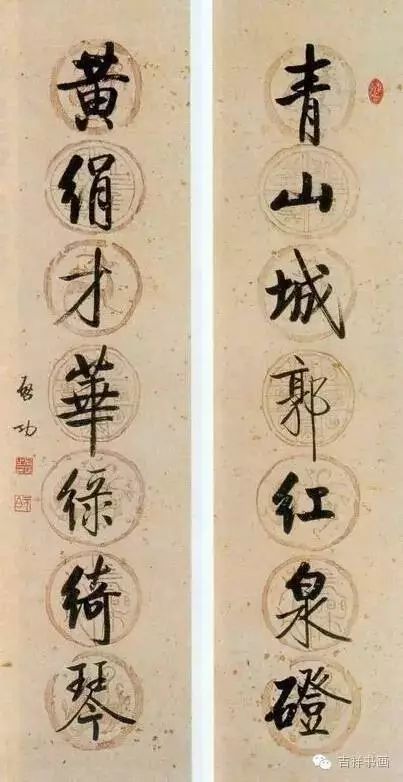 青山城郭紅泉磴
黃絹才華綠綺琴
啓功
吉祥书画